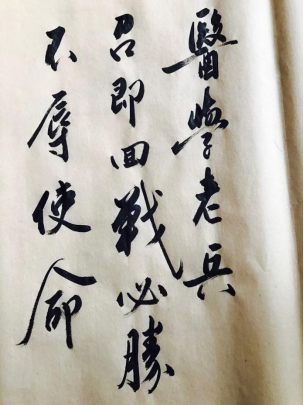 醫學老兵
召即回戰必勝
不辱使命